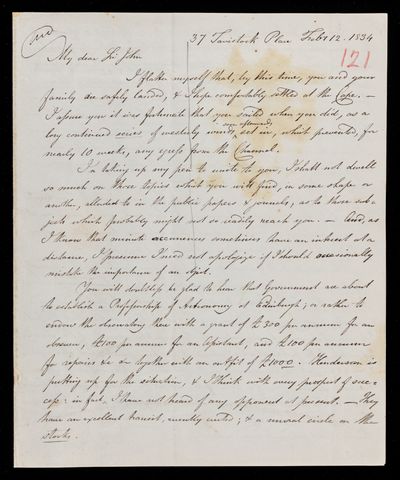 37 Tavistock Place Feb. 12. 1834
121
My dear Sir John
I flatter myself that, by this time, you and your
family are safely landed, & I hope comfortably settled at the Cape. —
I assure you it was fortunate that you sailed when you did, as a
long continued series of westerly winds, soon afterwards, set in, which prevented, for
nearly 10 weeks, any egress from the Channel.
In taking up my pen to write to you, I shall not dwell
so much on those topics which you will find, in some shape or
another, alluded to in the public papers & journals, as to those sub-
jects which probably might not so readily reach you. — And, as
I know that minute occurrences sometimes have an interest at a
distance, I presume I need not apologize if I should occasionally
mistake the importance of an object.
You will doubtless be glad to hear that Government are about
to establish a Professorship of Astronomy at Edinburgh; or rather to
endow the observatory there with a grant of £300 per annum for an
observer, £100 per annum for an assistant, and £100 per annum
for repairs &c &c together with an outfit of £1000. Henderson is
putting up for the situation, & I think with every prospect of suc-
cess: in fact, I have not heard of any opponent at present. — They
have an excellent transit, recently erected; & a mural circle on the
stocks.